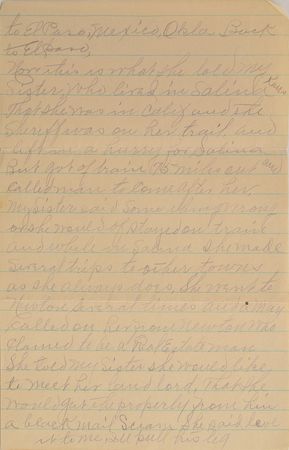 to El Paso, Mexico, Okla. Back
to El Paso,
Now this is what she told my
Sister, who lives in Salina Kans
That she was in Calif and the
Sheriff was on her trail and
left in a hurry for Salina
But got of train 75 miles out and
called man to come after her
My Sister said Some thing wrong
or she would of stayed on train
and while in Salina She make
Several trips to other towns
as she always does, she went to
Newton Several times and a man
called on her from Newton who
claimed to be a Real Estate man
She told my Sister she would like
to meet her land lord, That she
would get the property from him
a black mail Scram She said leave
it to me, ill pull his leg